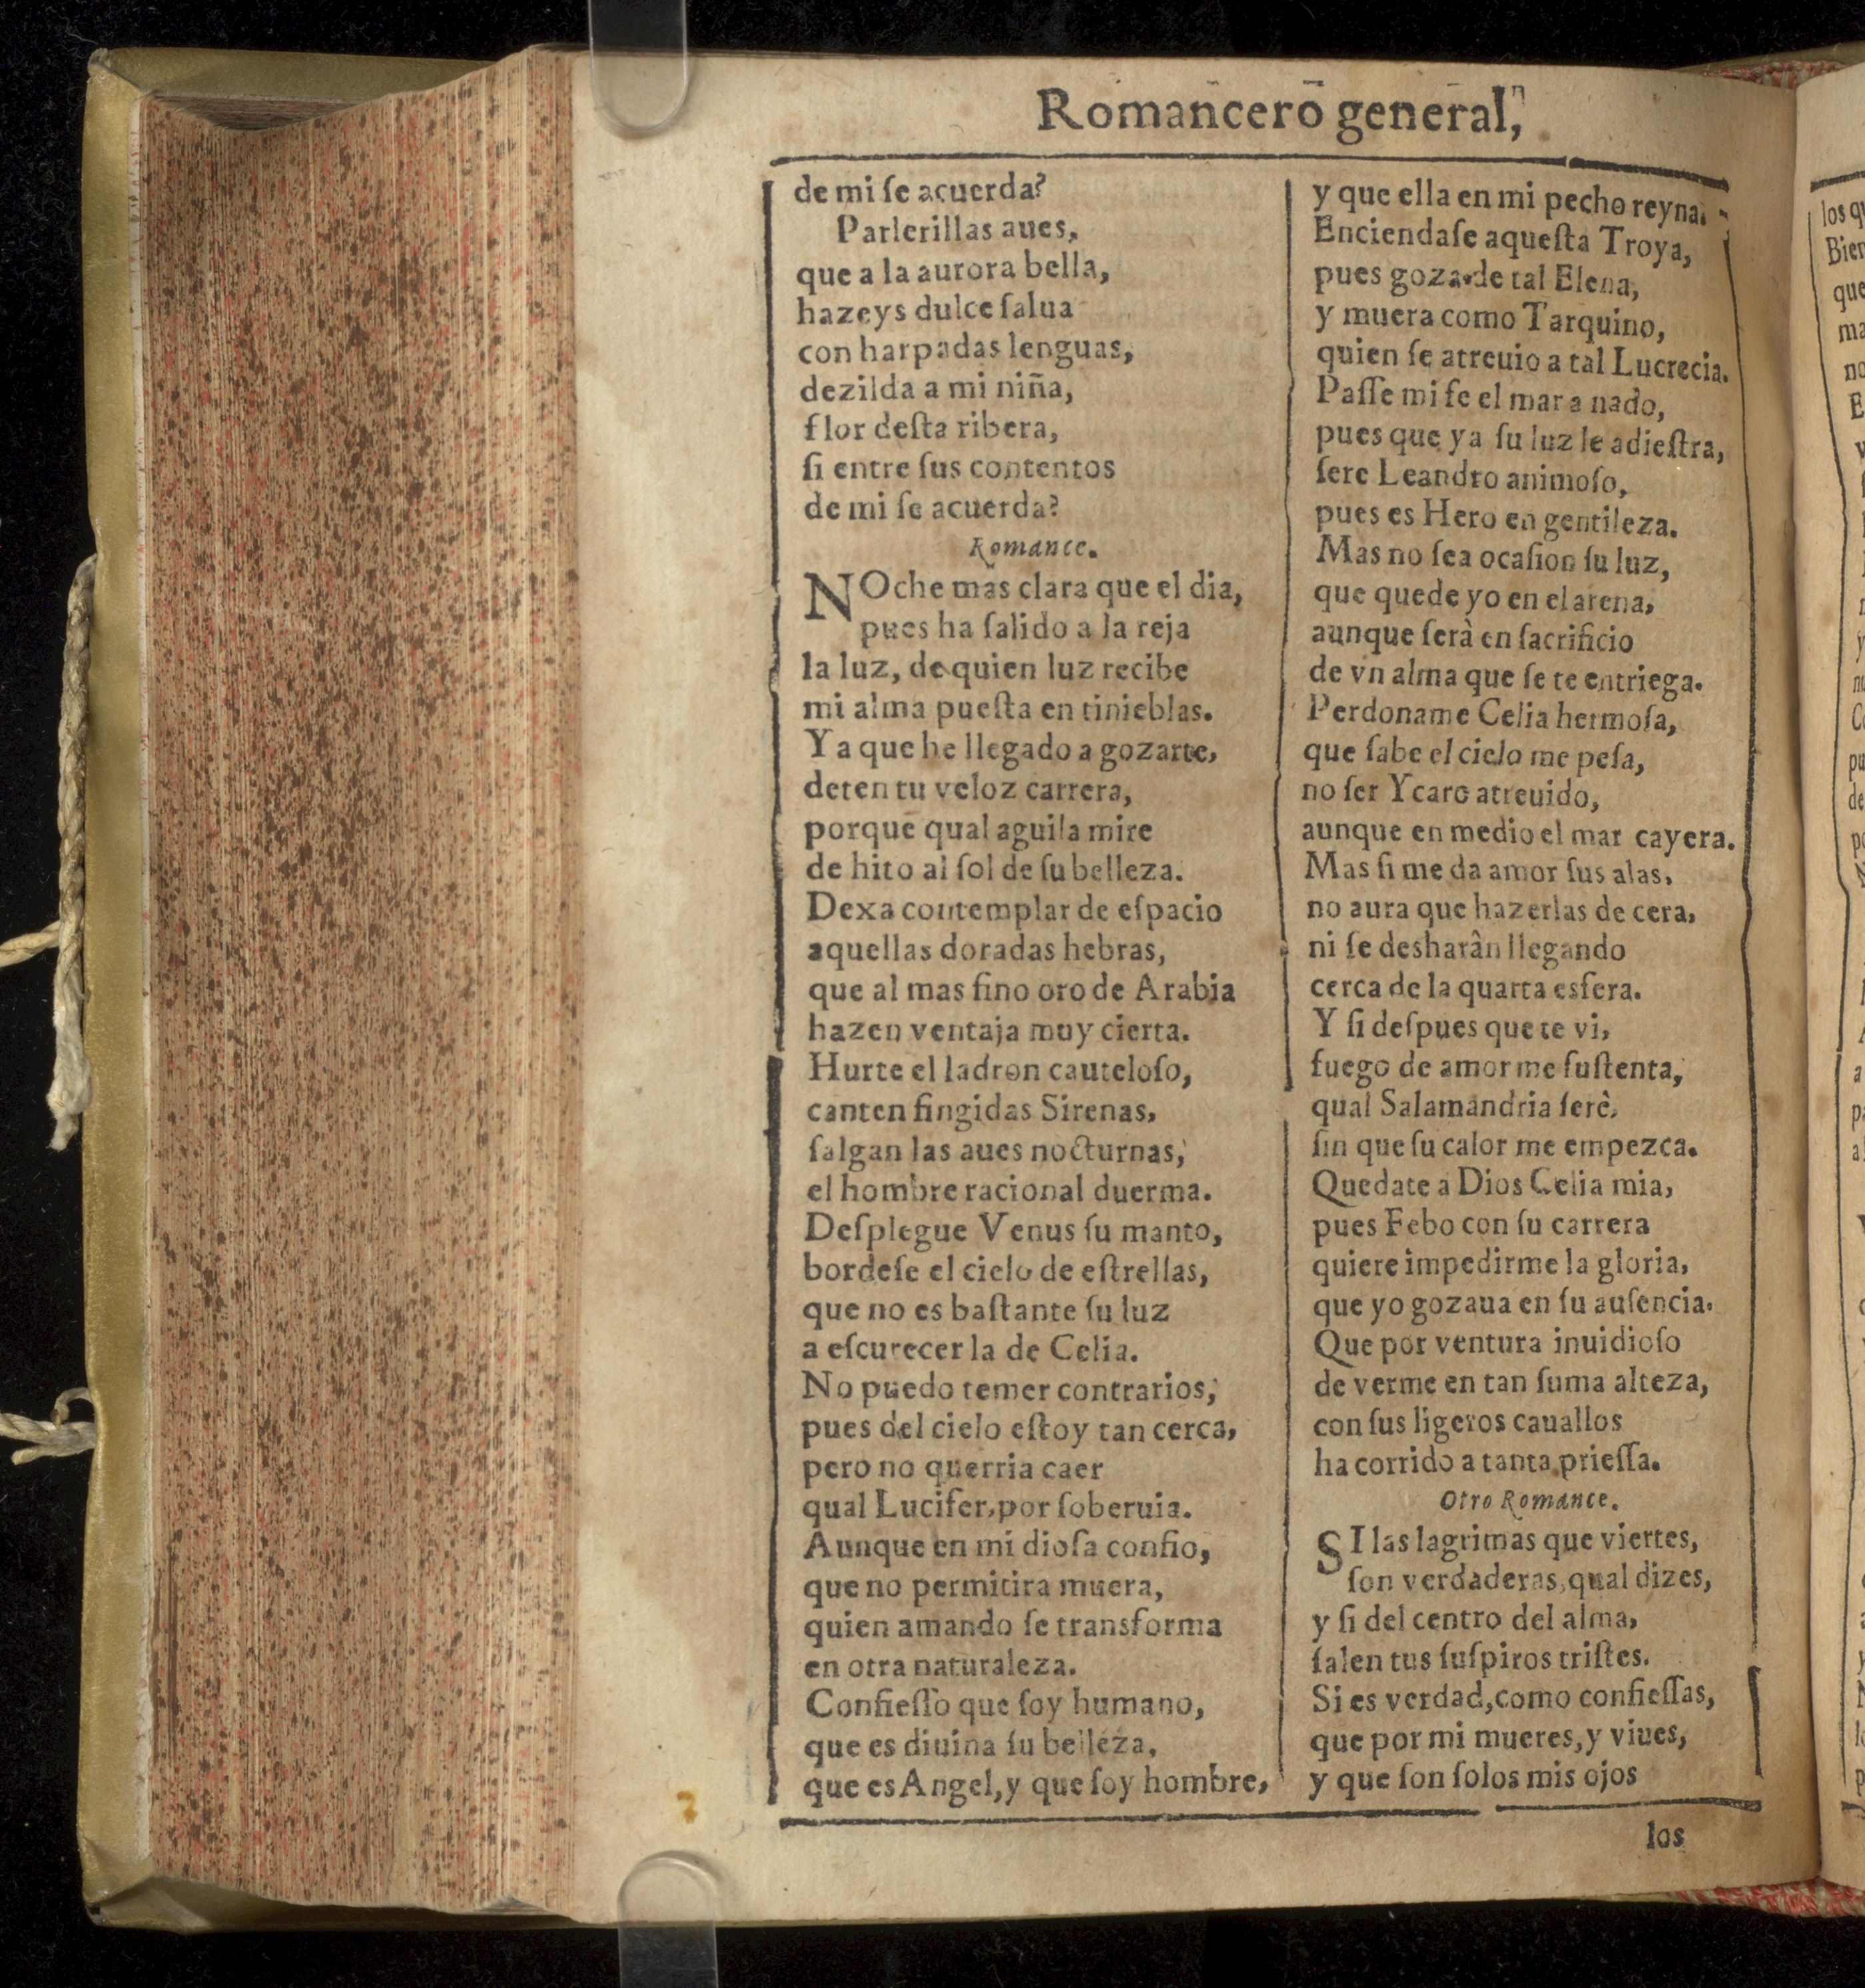 Romancero general,
de mi ſe acuerda?
Parlerillas aues,
que a la aurora bella,
hazeys dulce ſalua
con harpadas lenguas,
dezilda a mi niña,
flor deſta ribera,
ſi entre ſus contentos
de mi ſe acuerda?
Romance.
NOche mas clara que el dia,
pues ha ſalido a la reja
la luz, de quien luz recibe
mi alma pueſta en tinieblas.
Ya que he llegado a gozarte,
deten tu veloz carrera,
porque qual aguila mire
de hito al ſol de ſu belleza.
Dexa contemplar de eſpacio
aquellas doradas hebras,
que al mas fino oro de Arabia
hazen ventaja muy cierta.
Hurte el ladron cauteloſo,
canten fingidas Sirenas,
ſalgan las aues nocturnas,
el hombre racional duerma.
Deſplegue Venus ſu manto,
bordeſe el cielo de eſtrellas,
que no es baſtante ſu luz
a eſcurecer la de Celia.
No puedo temer contrarios,
pues del cielo eſtoy tan cerca,
pero no querria caer
qual Lucifer, por ſoberuia.
Aunque en mi dioſa confio,
que no permitira muera,
quien amando ſe transforma
en otra naturaleza.
Confieſſo que ſoy humano,
que es diuina ſu belleza,
que es Angel, y que ſoy hombre,
y que ella en mi pecho reyna.
Enciendaſe aqueſta Troya,
pues goza de tal Elena,
y muera como Tarquino,
quien ſe atreuio a tal Lucrecia.
Paſſe mi fe el mar a nado,
pues que ya ſu luz le adieſtra,
ſere Leandro animoſo,
pues es Hero en gentileza.
Mas no ſea ocaſion ſu luz,
que quede yo en el arena,
aunque ſerà en ſacrificio
de vn alma que ſe te entriega.
Perdoname Celia hermoſa,
que ſabe el cielo me peſa,
no ſer Ycaro atreuido,
aunque en medio el mar cayera.
Mas ſi me da amor ſus alas,
no aura que hazerlas de cera,
ni ſe desharân llegando
cerca de la quarta esfera.
Y ſi deſpues que te vi,
fuego de amor me ſuſtenta,
qual Salamandria ſerè,
ſin que ſu calor me empezca.
Quedate a Dios Celia mia,
pues Febo con ſu carrera
quiere impedirme la gloria,
que yo gozaua en ſu auſencia.
Que por ventura inuidioſo
de verme en tan ſuma alteza,
con ſus ligeros cauallos
ha corrido a tanta prieſſa.
Otro Romance.
SI las lagrimas que viertes,
ſon verdaderas, qual dizes,
y ſi del centro del alma,
ſalen tus ſuſpiros triſtes.
Si es verdad, como confieſſas,
que por mi mueres, y viues,
y que ſon ſolos mis ojos
los